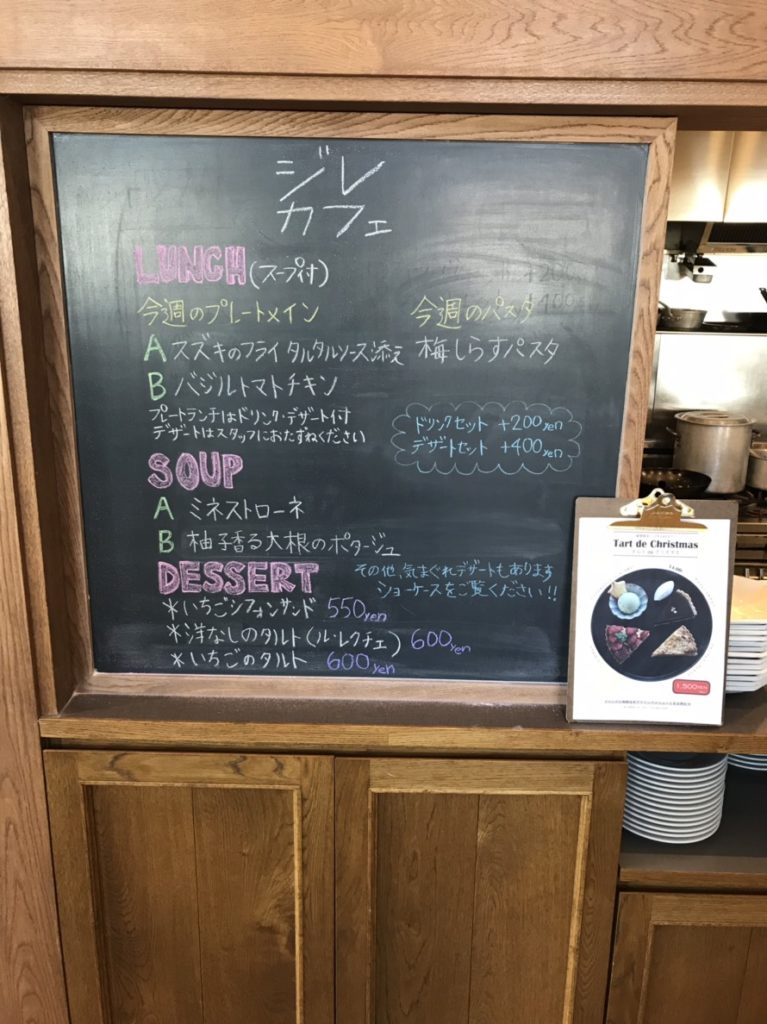 ジレ
カフェ
LUNCH (スープ付)
今週のプレートメイン
A スズキのフライ タルタルソース添え
B バジルトマトチキン
プレートランチはドリンク・デザート付
デザートはスタッフにおたずねください
今週のパスタ
梅しらすパスタ
ドリンクセット +200yen
デザートセット +400yen
SOUP
A ミネストローネ
B 柚子香る大根のポタージュ
DESSERT
*いちごシフォンサンド 550yen
*洋なしのタルト(ル・レクチェ) 600yen
*いちごのタルト 600yen
その他、気まぐれデザートもあります
ショーケースをご覧ください!!
Tart de Christmas
1,500